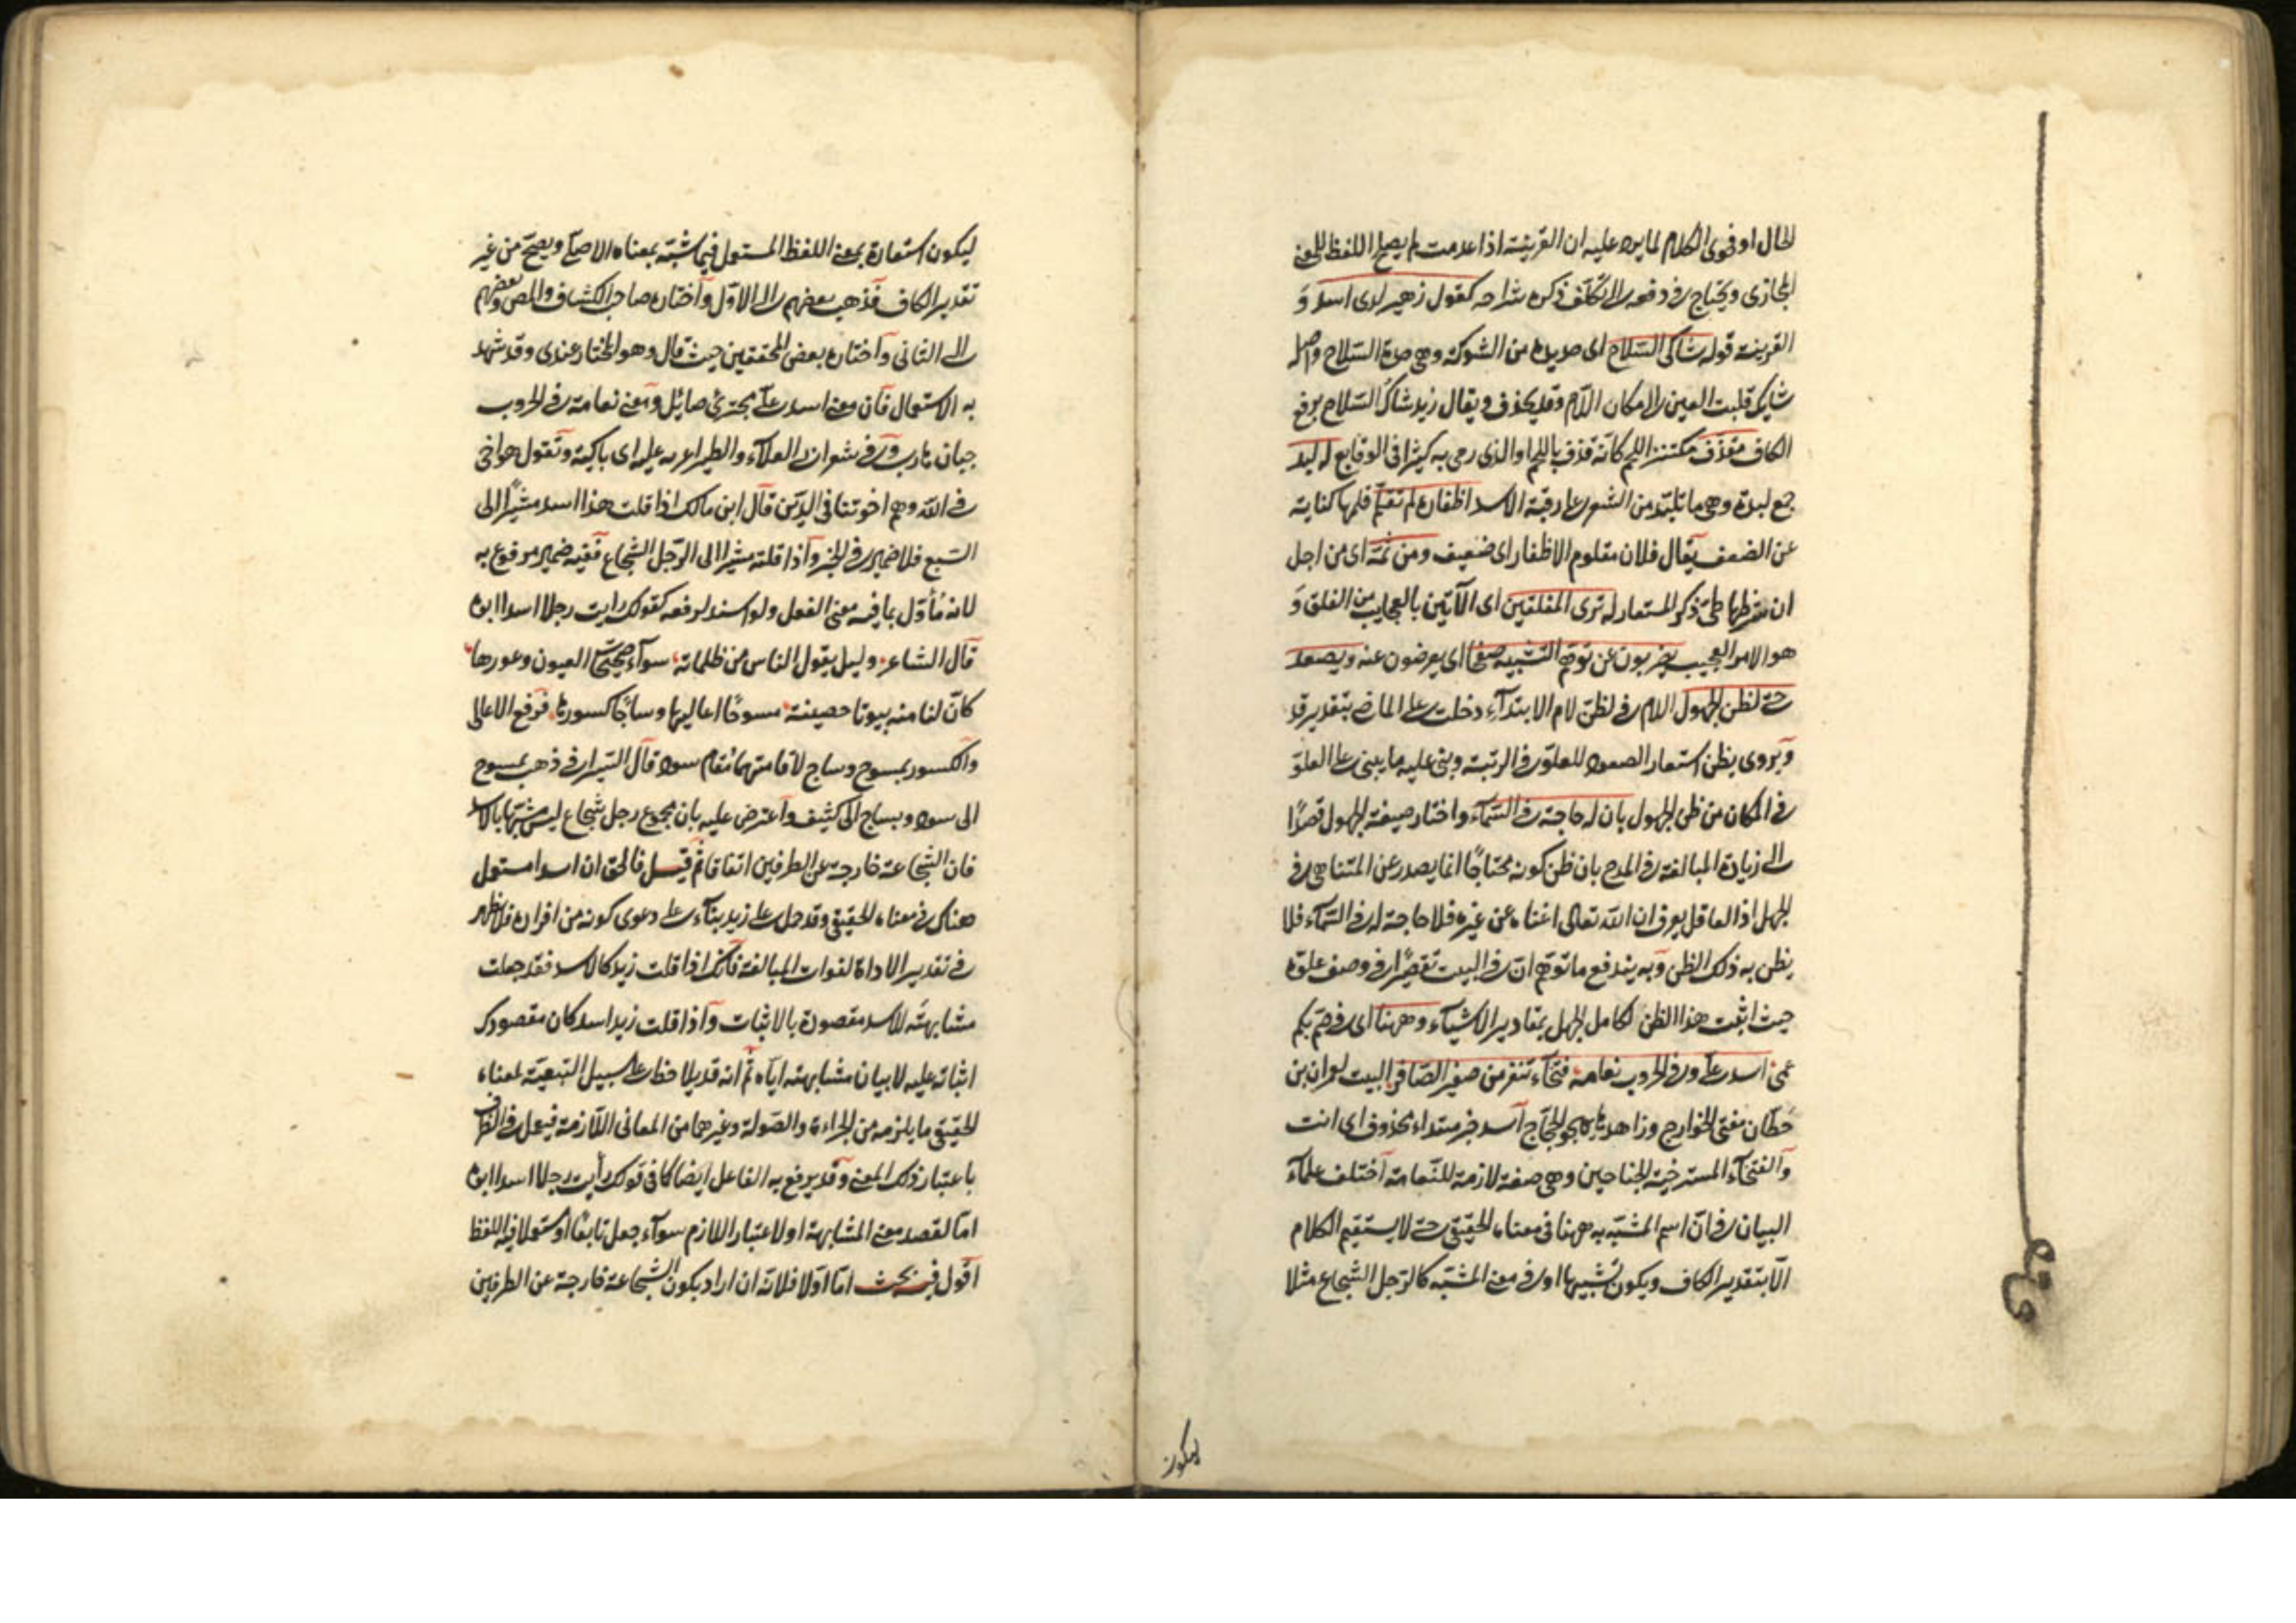 الحال او فحوى الكلام لما يرد عليه ان القرينة اذا عدمت لم يصلح اللفظ للمعنى
المجازى ويحتاج فى دفعه الى تكلف ذكره شراحه كقول زهير لدى اسد و
القرينة قوله شاكى السلاح اى حديده من الشوكة وهى حدة السلاح واصله
شايك قلبت العين الى مكان اللام وقد يحذف ويقال زيد شاك السلاح برفع
الكاف مقذف مكتنز اللحم كانه قذف باللحم او الذى رمى به كثيرا فى الوقايع له لبد
جمع لبدة وهى ما تلبد من الشعر على رقبة الاسد اظفاره لم تقلم قلمها كناية
عن الضعف يقال فلان مقلوم الاظفار اى ضعيف ومن ثمة اى من اجل
ان شرطها طى ذكر المستعار له ترى المفلقين اى الآتين بالعجايب من الفلق و
هو الامر العجيب يضربون عن توهم التشبيه صفحا اى يعرضون عنه ويصعد
حتى لظن الجهول اللام فى لظن لام الابتدآء دخلت على الماضى بتقدير قد
ويروى يظن استعار الصعود للعلو فى الرتبة وبنى عليه ما يبنى على العلو
فى المكان من ظن الجهول بان له حاجة فى السمآء واختار صيغة الجهول قصدا
الى زيادة المبالغة فى المدح بان ظن كونه محتاجا انما يصدر عن المتناهى فى
الجهل اذ العاقل يعرف ان الله تعالى اغناه عن غيره فلا حاجة له فى السمآء فلا
يظن به ذلك الظن وبه يندفع ما توهم ان فى البيت تقصيرا فى وصف علوه
حيث اثبت هذا الظن لكامل الجهل بمقادير الاشيآء وههنا اى فى صم بكم
عمى اسد على وفى الحروب نعامة فتخآء تنفر من صفير الصافر البيت لعمران بن
حطان مفتى الخوارج وزاهدها يهجو الحجاج اسد خبر مبتداء محذوف اى انت
والفتخآء المسترخية الجناحين وهى صفة لازمة للنعامة اختلف علمآء
البيان فى ان اسم المشبه به ههنا فى معناه الحقيقى حتى لا يستقيم الكلام
الا بتقدير الكاف ويكون تشبيها او فى معنى المشبه كالرجل الشجاع مثلا
ليكون
ليكون استعارة بمعنى اللفظ المستعمل فيما شبه بمعناه الاصلى ويصح من غير
تقدير الكاف فذهب بعضهم الى الاول واختاره صاحب الكشاف والمص وبعضهم
الى الثانى واختاره بعض المحققين حيث قال وهو المختار عندى وقد شهد
به الاستعمال فان معنى اسد على مجترئ صائل ومعنى نعامة فى الحروب
جبان هارب وفى شعر ابى العلآء والطير اغربة عليه اى باكية وتقول هو اخى
فى الله وهم اخوتنا فى الدين قال ابن مالك اذا قلت هذا اسد مشيرا الى
السبع فلا ضمير فى الخبر واذا قلته مشيرا الى الرجل الشجاع ففيه ضمير مرفوع به
لانه مأول بما فيه معنى الفعل ولو اسند لرفعه كقولك رايت رجلا اسدا ابوه
قال الشاعر وليل يقول الناس من ظلماته سوآء صحيحات العيون وعورها
كان لنا منه بيوتا حصينة مسوحا اعاليها وساجا كسورها فرفع الاعالى
والكسور بمسوح وساج لاقامتهما مقام سود قال السيرافى ذهب بمسوح
الى سود وبساج الى كثيف واعترض عليه بان مجموع رجل شجاع ليس مشبها بالاسد
فان الشجاعة خارجة عن الطرفين اتفاقا ثم قيل فالحق ان اسدا مستعمل
هناك فى معناه الحقيقى وقد حمل على زيد بنآء على دعوى كونه من افراده فلا ظهر
فى تقدير الاداة لفوات المبالغة فانك اذا قلت زيد كالاسد فقد جعلت
مشابهته للاسد مقصودة بالاثبات واذا قلت زيد اسد كان مقصودك
اثباته عليه لا بيان مشابهته اياه ثم انه قد يلاحظ على سبيل التبعية لمعناه
الحقيقى ما يلزمه من الجراءة والصولة وغيرهما من المعانى اللازمة فيعمل فى الظرف
باعتبار ذلك المعنى وقد يرفع به الفاعل ايضا كما فى قولك رأيت رجلا اسدا ابوه
اما لقصد معنى المشابهة او لاعتبار اللازم سوآء جعل تابعا او مستعملا فيه اللفظ
اقول فيه بحث اما اولا فلانه ان اراد بكون الشجاعة خارجة عن الطرفين